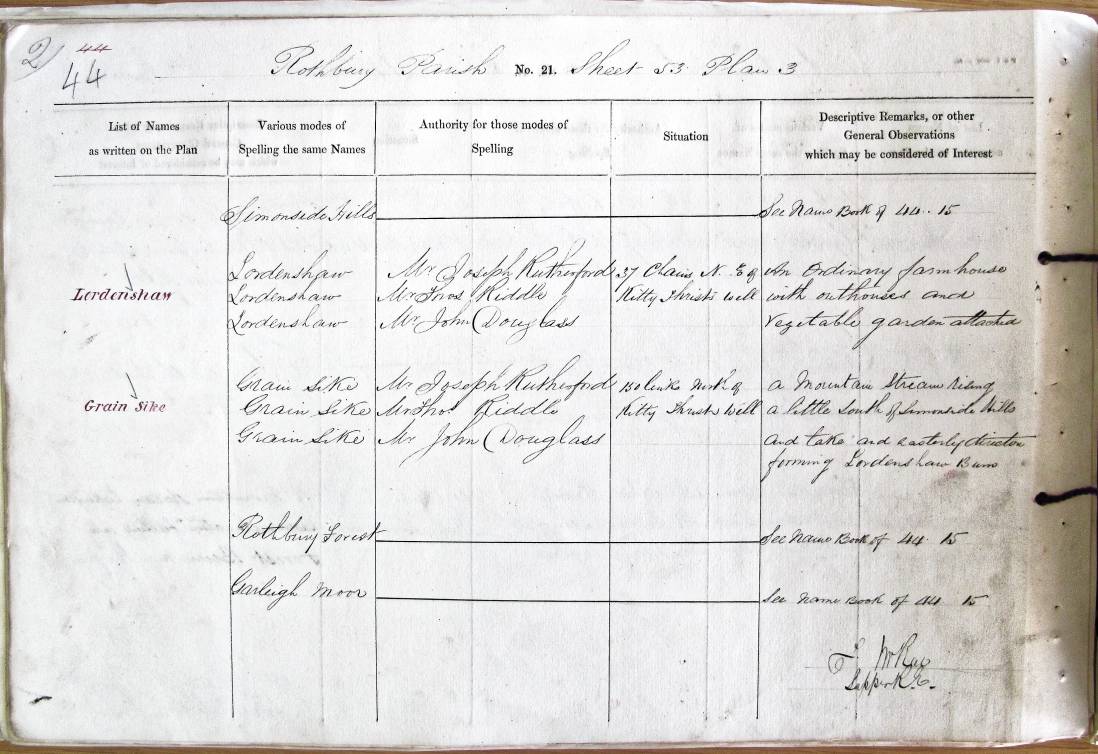 2
44
44
Rothbury Parish No. 21. Sheet 53 Plan 3
List of Names
as written on the Plan
Various modes of
Spelling the same Names
Authority for those modes of
Spelling
Situation
Descriptive Remarks, or other
General Observations
which may be considered of Interest
Simonside Hills
See Name Book of 44..15
Lordenshaw
Lordenshaw
Lordenshaw
Lordenshaw
Mr Joseph Rutherford
Mr Thos Riddle
Mr John Douglass
37 Chains N. E of
Kitty Thrists Well
An Ordinary farmhouse
with outhouses and
Vegetable garden attached
Grain Sike
Grain Sike
Grain Sike
Grain Sike
Mr Joseph Rutherford
Mr Thos Riddle
Mr John Douglass
150 links North of
Kitty Thrists Well
a Mountain Stream rising
a little South of Simonside Hills
and take and easterly direction
forming Lordenshaw Burn
Rothbury Forest
See Name Book of 44 15
Garleigh Moor
See Name Book of 44 15
T McRae
Sapper R.E.